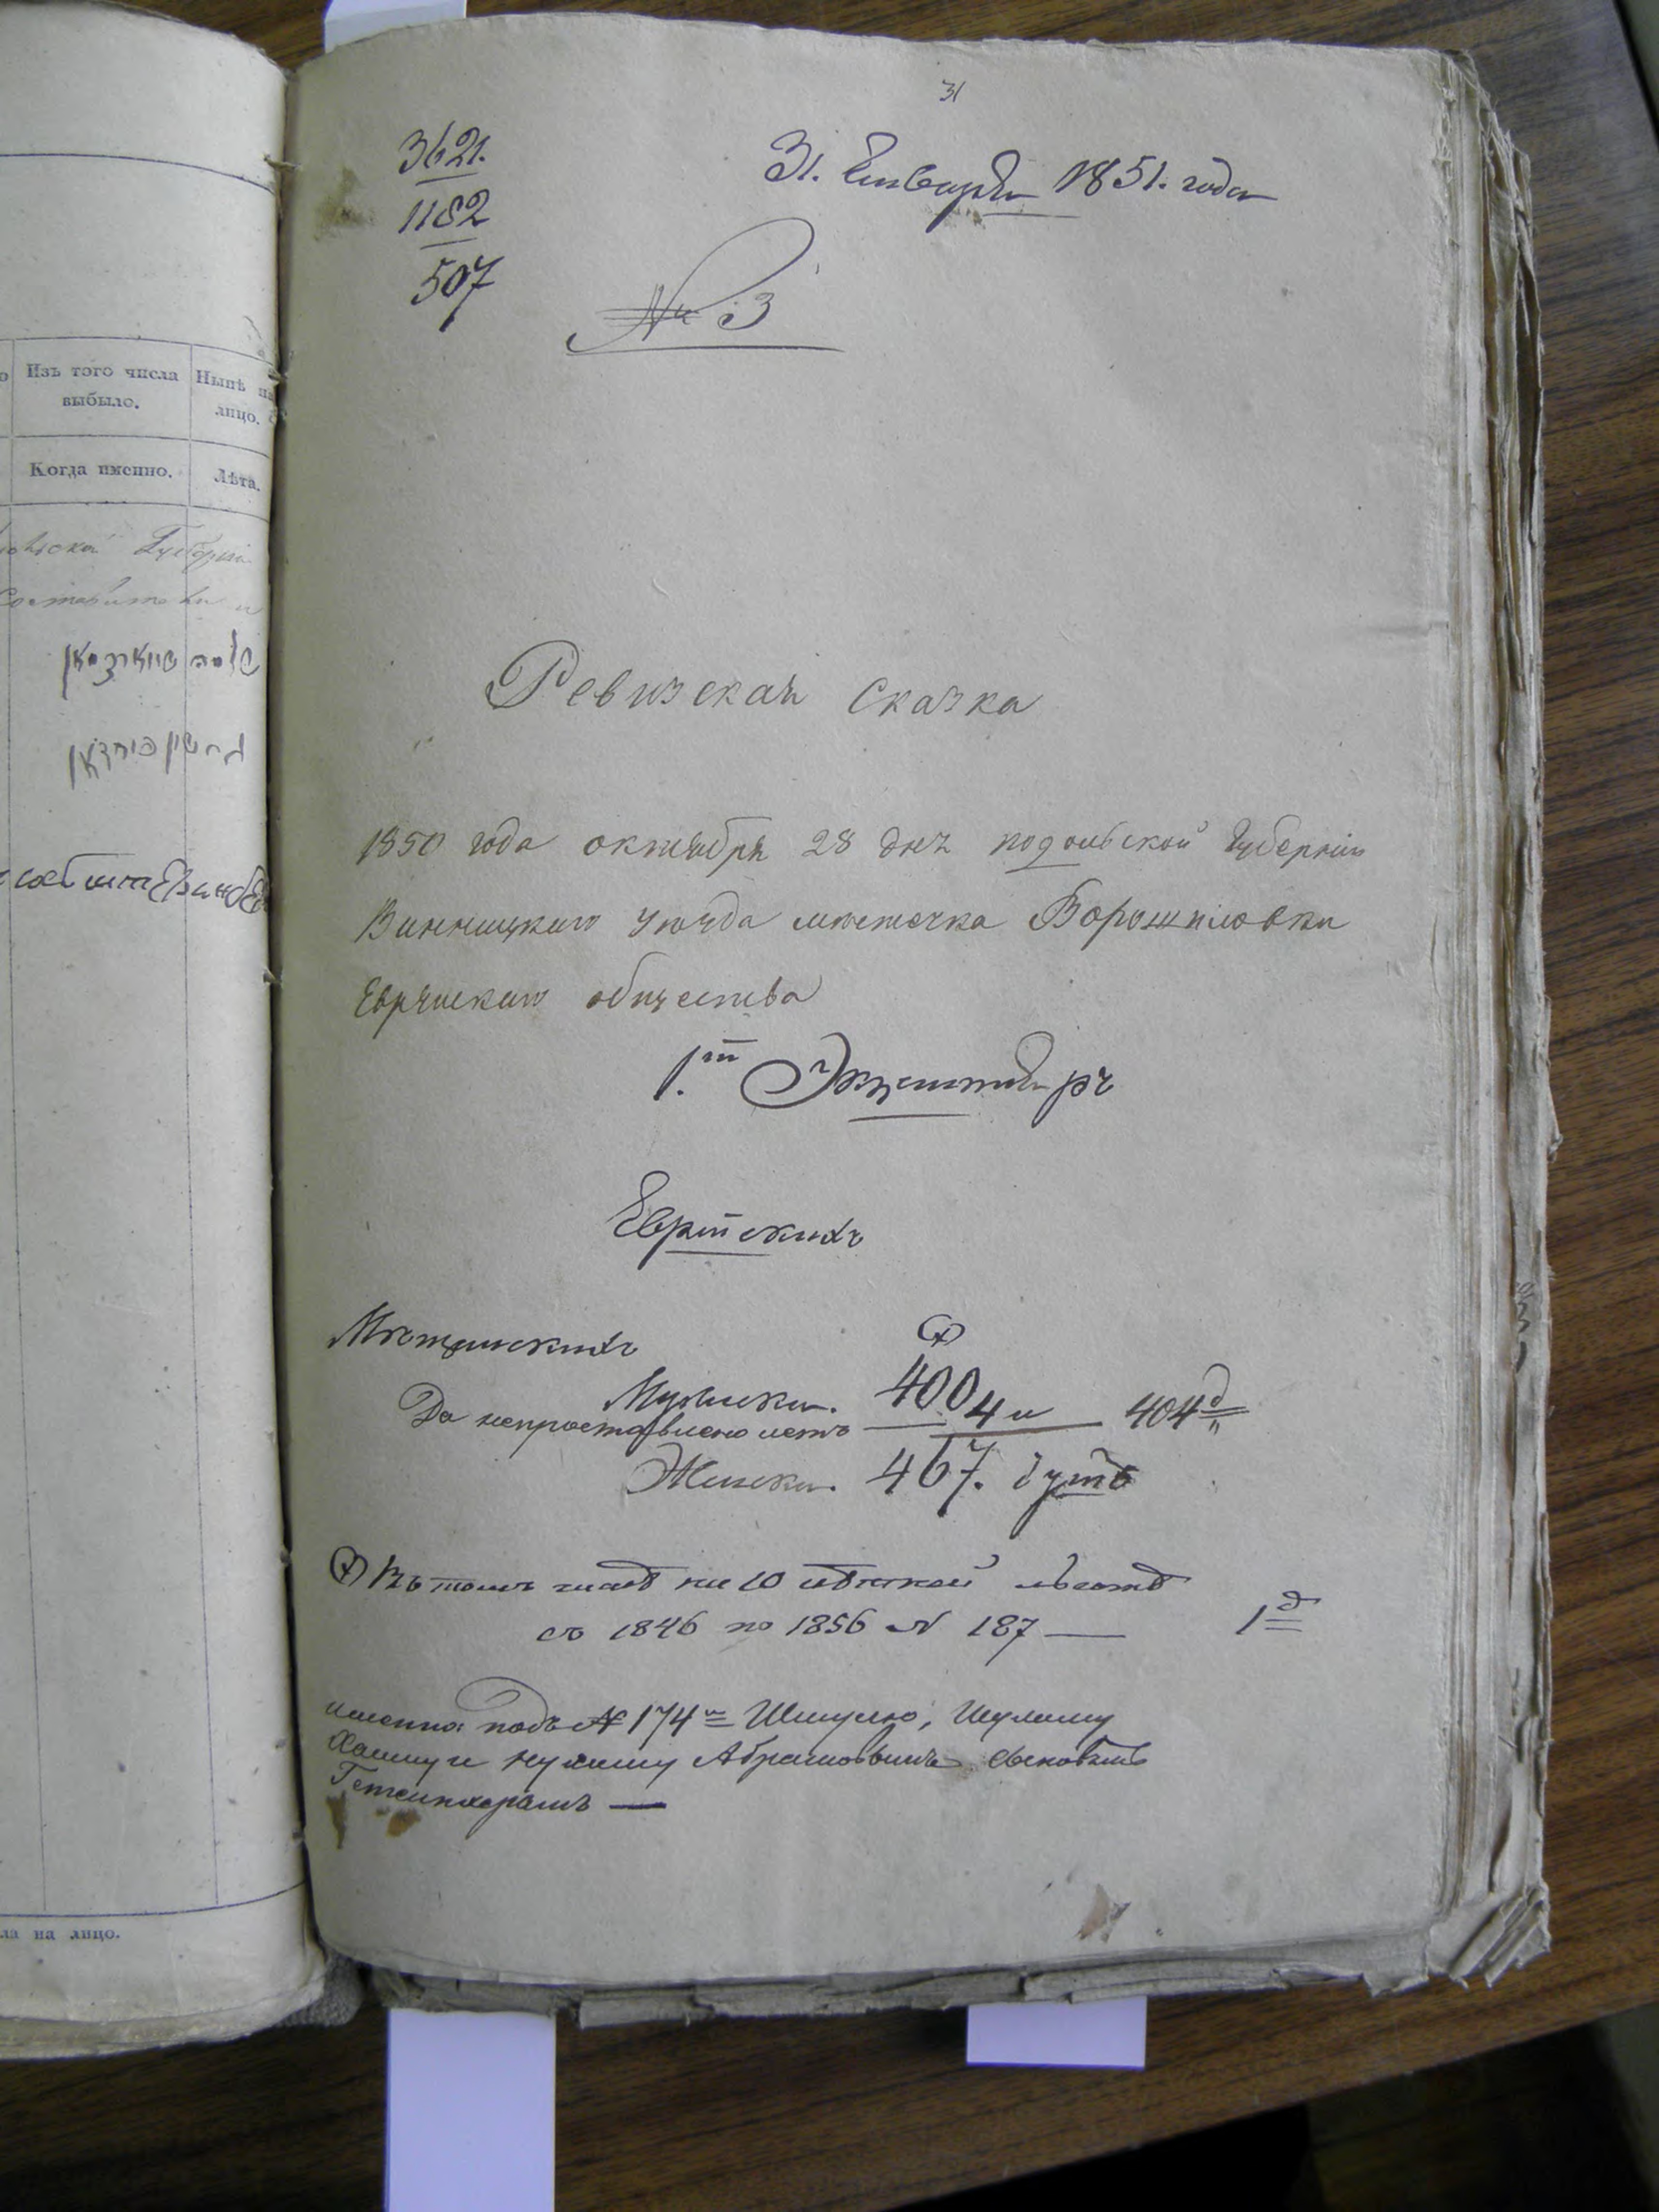 Изъ того числа
выбыло.
Нынѣ на
лицо.
Когда именно.
Лѣта.
Губерніи
ла на лицо.
31
3621.
1182
507
31. Января 1851. года
№ 3
Ревизская Сказка
1850 года октября 28 дня подольской Губерніи
Винницкаго уѣзда местечка Ворошиловки
Еврейскаго общества
1.й Экземпляръ
Еврейскихъ
Мѣщанскихъ
(х)
Мужеска. 400
Да непроставлено летъ 4 и 404 д
Женска. 467. душъ
(х) Въ томъ числѣ на 10 лѣтней льготѣ
съ 1846 по 1856 № 187 — 1 д
именно: подъ № 174 Шмулю, Шулиму
Хаиму и Нухиму Абрамовымъ сыновьямъ